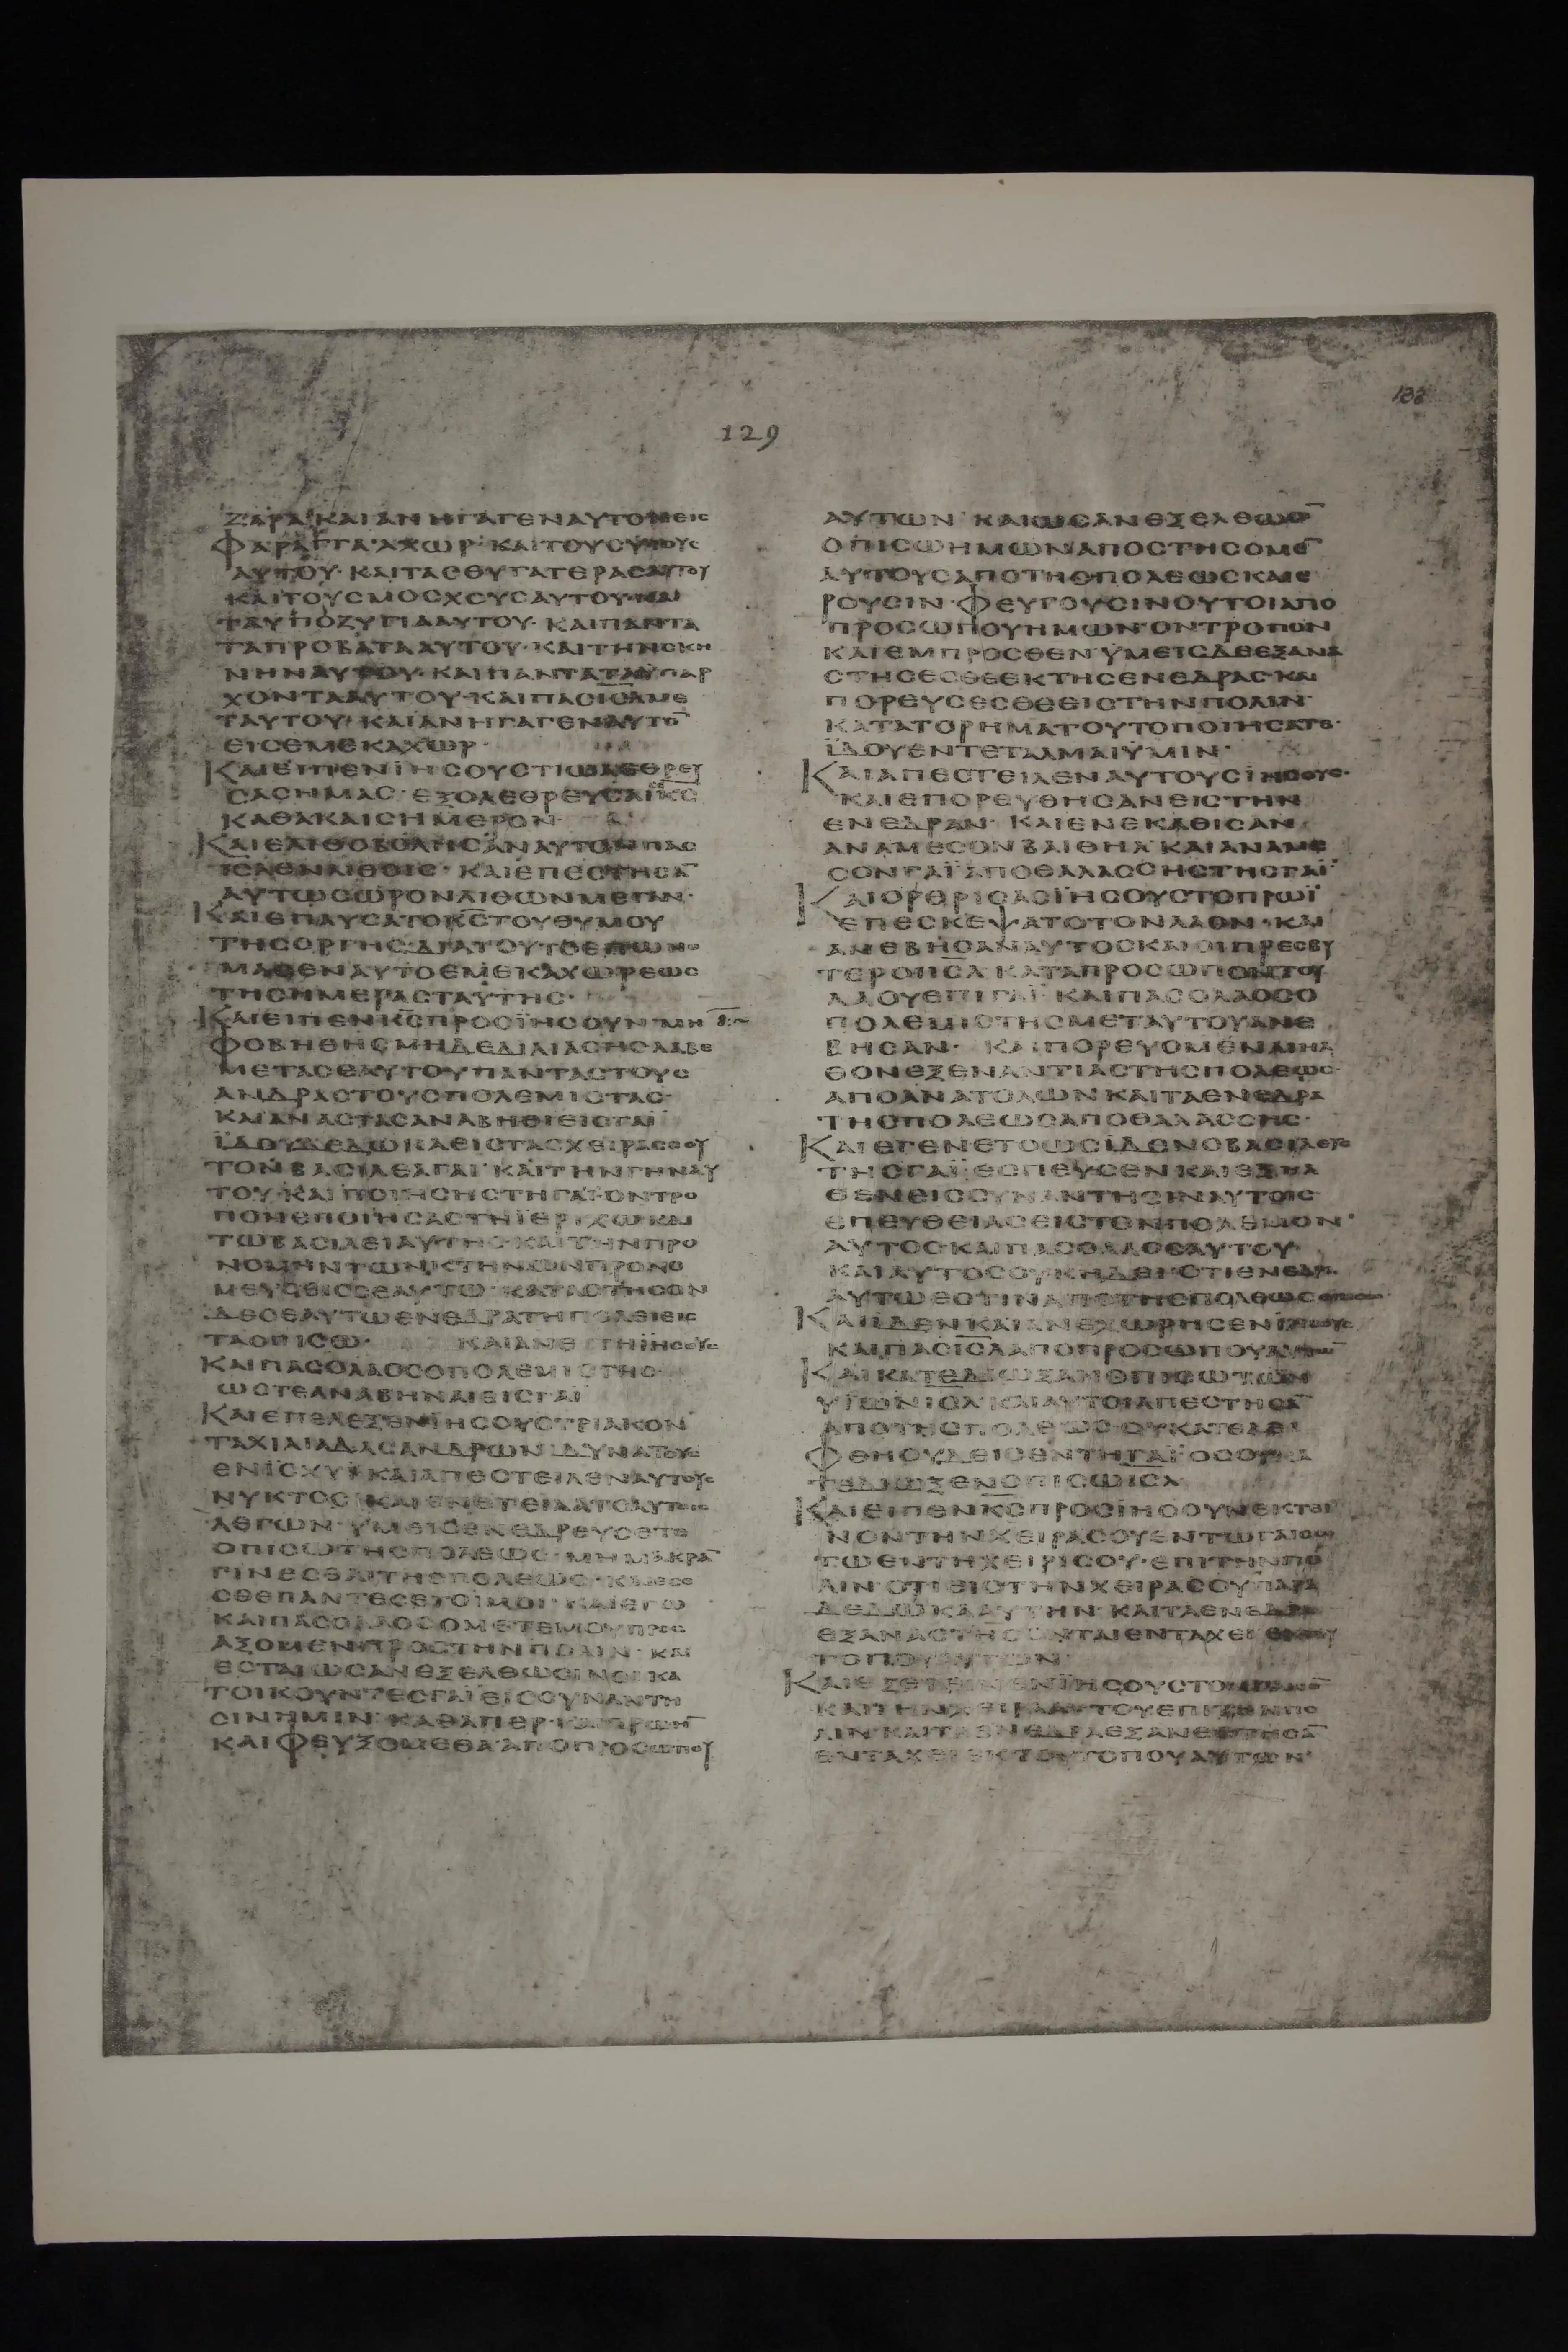 133
129
ΖΑΡΑ ΚΑΙΑΝΗΓΑΓΕΝΑΥΤΟΝΕΙC
ΦΑΡΑΓΓΑ·ΑΧΩΡ· ΚΑΙΤΟΥCΥΪΟΥC
ΑΥΤΟΥ· ΚΑΙΤΑCΘΥΓΑΤΕΡΑCΑΥΤΟΥ
ΚΑΙΤΟΥCΜΟCΧΟΥCΑΥΤΟΥ·ΚΑΙ
ΤΑΥΠΟΖΥΓΙΑΑΥΤΟΥ· ΚΑΙΠΑΝΤΑ
ΤΑΠΡΟΒΑΤΑΑΥΤΟΥ·ΚΑΙΤΗΝCΚΗ
ΝΗΝΑΥΤΟΥ·ΚΑΙΠΑΝΤΑΤΑΫΠΑΡ
ΧΟΝΤΑΑΥΤΟΥ·ΚΑΙΠΑCΙC̅Λ̅ΜΕ
ΤΑΥΤΟΥ· ΚΑΙΑΝΗΓΑΓΕΝΑΥΤΟ̅
ΕΙCΕΜΕΚΑΧΩΡ·
ΚΑΙΕΙΠΕΝΙΗCΟΥCΤΙΩΛΕΘΡΕΥ
CΑCΗΜΑC· ΕΞΟΛΕΘΡΕΥCΑΙ K̅C̅
ΚΑΘΑΚΑΙCΗΜΕΡΟΝ·
ΚΑΙΕΛΙΘΟΒΟΛΗCΑΝΑΥΤΟΝΠΑC
ΙC̅Λ̅ΕΝΛΙΘΟΙC· ΚΑΙΕΠΕCΤΗCΑ̅
ΑΥΤΩCΩΡΟΝΛΙΘΩΝΜΕΓΑΝ·
ΚΑΙΕΠΑΥCΑΤΟK̅C̅ΤΟΥΘΥΜΟΥ
ΤΗCΟΡΓΗCΔΙΑΤΟΥΤΟΕΠΩΝΟ
ΜΑCΕΝΑΥΤΟΕΜΕΚΑΧΩΡΕΩC
ΤΗCΗΜΕΡΑCΤΑΥΤΗC·
ΚΑΙΕΙΠΕΝK̅C̅ΠΡΟCΪΗCΟΥΝ·ΜΗ
ΦΟΒΗΘΗCΜΗΔΕΔΙΛΙΑCΗCΛΑΒΕ
ΜΕΤΑCΕΑΥΤΟΥΠΑΝΤΑCΤΟΥC
ΑΝΔΡΑCΤΟΥCΠΟΛΕΜΙCΤΑC·
ΚΑΙΑΝΑCΤΑCΑΝΑΒΗΘΙΕΙCΓΑΙ
ΪΔΟΥΔΕΔΩΚΑΕΙCΤΑCΧΕΙΡΑCCΟΥ
ΤΟΝΒΑCΙΛΕΑΓΑΙ· ΚΑΙΤΗΝΓΗΝΑΥ
ΤΟΥ·ΚΑΙΠΟΙΗCΗCΤΗΓΑΙ·ΟΝΤΡΟ
ΠΟΝΕΠΟΙΗCΑCΤΗΪΕΡΙΧΩΚΑΙ
ΤΩΒΑCΙΛΕΙΑΥΤΗC·ΚΑΙΤΗΝΠΡΟ
ΝΟΜΗΝΤΩΝΚΤΗΝΩΝΠΡΟΝΟ
ΜΕΥCΕΙCCΕΑΥΤΩ· ΚΑΤΑCΤΗCΟΝ
ΔΕCΕΑΥΤΩΕΝΕΔΡΑΤΗΠΟΛΕΙΕΙC
ΤΑΟΠΙCΩ· ΚΑΙΑΝΕCΤΗΪΗCΟΥC
ΚΑΙΠΑCΟΛΑΟCΟΠΟΛΕΜΙCΤΗC·
ΩCΤΕΑΝΑΒΗΝΑΙΕΙCΓΑΙ
ΚΑΙΕΠΕΛΕΞΕΝΪΗCΟΥCΤΡΙΑΚΟΝ
ΤΑΧΙΛΙΑΔΑCΑΝΔΡΩΝΔΥΝΑΤΟΥC
ΕΝΪCΧΥΪ·ΚΑΙΑΠΕCΤΕΙΛΕΝΑΥΤΟΥC
ΝΥΚΤΟC·ΚΑΙΕΝΕΤΕΙΛΑΤΟΑΥΤΟΙC
ΛΕΓΩΝ·ΥΜΕΙCΕΝΕΔΡΕΥCΕΤΕ
ΟΠΙCΩΤΗCΠΟΛΕΩC·ΜΗΜΑΚΡΑ̅
ΓΙΝΕCΘΑΙΤΗCΠΟΛΕΩC· ΚΑΙΕCΕ
CΘΕΠΑΝΤΕCΕΤΟΙΜΟΙ· ΚΑΙΕΓΩ
ΚΑΙΠΑCΟΛΑΟCΟΜΕΤΕΜΟΥΠΡΟC
ΑΞΟΜΕΝΠΡΟCΤΗΝΠΟΛΙΝ· ΚΑΙ
ΕCΤΑΙΩCΑΝΕΞΕΛΘΩCΙΝΟΙΚΑ
ΤΟΙΚΟΥΝΤΕCΓΑΙ·ΕΙCCΥΝΑΝΤΗ
CΙΝΗΜΙΝ·ΚΑΘΑΠΕΡΚΑΙΠΡΩΗ̅
ΚΑΙΦΕΥΞΟΜΕΘΑΑΠΟΠΡΟCΩΠΟΥ
ΑΥΤΩΝ· ΚΑΙΩCΑΝΕΞΕΛΘΩCΙ̅
ΟΠΙCΩΗΜΩΝΑΠΟCΤΗCΟΜΕ̅
ΑΥΤΟΥCΑΠΟΤΗCΠΟΛΕΩCΚΑΙΕ
ΡΟΥCΙΝ·ΦΕΥΓΟΥCΙΝΟΥΤΟΙΑΠΟ
ΠΡΟCΩΠΟΥΗΜΩΝ·ΟΝΤΡΟΠΟΝ
ΚΑΙΕΜΠΡΟCΘΕΝ·ΫΜΕΙCΔΕΕΞΑΝΑ
CΤΗCΕCΘΕΕΚΤΗCΕΝΕΔΡΑC·ΚΑΙ
ΠΟΡΕΥCΕCΘΕΕΙCΤΗΝΠΟΛΙΝ·
ΚΑΤΑΤΟΡΗΜΑΤΟΥΤΟΠΟΙΗCΑΤΕ·
ΪΔΟΥΕΝΤΕΤΑΛΜΑΙΫΜΙΝ·
ΚΑΙΑΠΕCΤΕΙΛΕΝΑΥΤΟΥCΪΗCΟΥC·
ΚΑΙΕΠΟΡΕΥΘΗCΑΝΕΙCΤΗΝ
ΕΝΕΔΡΑΝ· ΚΑΙΕΝΕΚΑΘΙCΑΝ
ΑΝΑΜΕCΟΝΒΑΙΘΗΛ·ΚΑΙΑΝΑΜΕ
CΟΝΓΑΪ·ΑΠΟΘΑΛΑCCΗCΤΗCΓΑΪ·
ΚΑΙΟΡΘΡΙCΑCΪΗCΟΥCΤΟΠΡΩΪ
ΕΠΕCΚΕΨΑΤΟΤΟΝΛΑΟΝ·ΚΑΙ
ΑΝΕΒΗCΑΝΑΥΤΟCΚΑΙΟΙΠΡΕCΒΥ
ΤΕΡΟΙΙC̅Λ̅ΚΑΤΑΠΡΟCΩΠΟΝΤΟΥ
ΛΑΟΥΕΠΙΓΑΪ· ΚΑΙΠΑCΟΛΑΟCΟ
ΠΟΛΕΜΙCΤΗCΜΕΤΑΥΤΟΥΑΝΕ
ΒΗCΑΝ· ΚΑΙΠΟΡΕΥΟΜΕΝΟΙΗΛ
ΘΟΝΕΞΕΝΑΝΤΙΑCΤΗCΠΟΛΕΩC·
ΑΠΟΑΝΑΤΟΛΩΝ·ΚΑΙΤΑΕΝΕΔΡΑ
ΤΗCΠΟΛΕΩCΑΠΟΘΑΛΑCCΗC·
ΚΑΙΕΓΕΝΕΤΟΩCΪΔΕΝΟΒΑCΙΛΕΥC
ΤΗCΓΑΪ·ΕCΠΕΥCΕΝΚΑΙΕΞΗΛ
ΘΕΝΕΙCCΥΝΑΝΤΗCΙΝΑΥΤΟΙC
ΕΠΕΥΘΕΙΑCΕΙCΤΟΝΠΟΛΕΜΟΝ·
ΑΥΤΟC·ΚΑΙΠΑCΟΛΑΟCΑΥΤΟΥ·
ΚΑΙΑΥΤΟCΟΥΚΗΔΕΙ·ΟΤΙΕΝΕΔΡΑ
ΑΥΤΩΕCΤΙΝΑΠΟΤΗCΠΟΛΕΩC
ΚΑΙΪΔΕΝΚΑΙΑΝΕΧΩΡΗCΕΝΪΗCΟΥC
ΚΑΙΠΑCΙC̅Λ̅ΑΠΟΠΡΟCΩΠΟΥΑΥΤΩ̅
ΚΑΙΚΑΤΕΔΙΩΞΑΝΟΠΙCΩΤΩΝ
ΥΪΩΝΙC̅Λ̅·ΚΑΙΑΥΤΟΙΑΠΕCΤΗCΑ̅
ΑΠΟΤΗCΠΟΛΕΩC·ΟΥΚΑΤΕΛΕΙ
ΦΘΗΟΥΔΕΙCΕΝΤΗΓΑΪ·ΟCΟΥΚΑ
ΤΕΔΙΩΞΕΝΟΠΙCΩΙC̅Λ̅
ΚΑΙΕΙΠΕΝK̅C̅ΠΡΟCΪΗCΟΥΝΕΚΤΕΙ
ΝΟΝΤΗΝΧΕΙΡΑCΟΥΕΝΤΩΓΑΙCΩ
ΤΩΕΝΤΗΧΕΙΡΙCΟΥ·ΕΠΙΤΗΝΠΟ
ΛΙΝ·ΟΤΙΕΙCΤΗΝΧΕΙΡΑCΟΥΠΑΡΑ
ΔΕΔΩΚΑΑΥΤΗΝ· ΚΑΙΤΑΕΝΕΔΡΑ
ΕΞΑΝΑCΤΗCΟΝΤΑΙΕΝΤΑΧΕΙ
ΤΟΠΟΥΑΥΤΩΝ
ΚΑΙΕΞΕΤΕΙΝΕΝΪΗCΟΥCΤΟ
ΚΑΙΤΗΝΧΕΙΡΑΑΥΤΟΥΕΠΙΤΗΝΠΟ
ΛΙΝ·ΚΑΙΤΑΕΝΕΔΡΑΕΞΑΝΕCΤΗCΑ̅
ΕΝΤΑΧΕΙΕΚΤΟΥΤΟΠΟΥΑΥΤΩΝ·